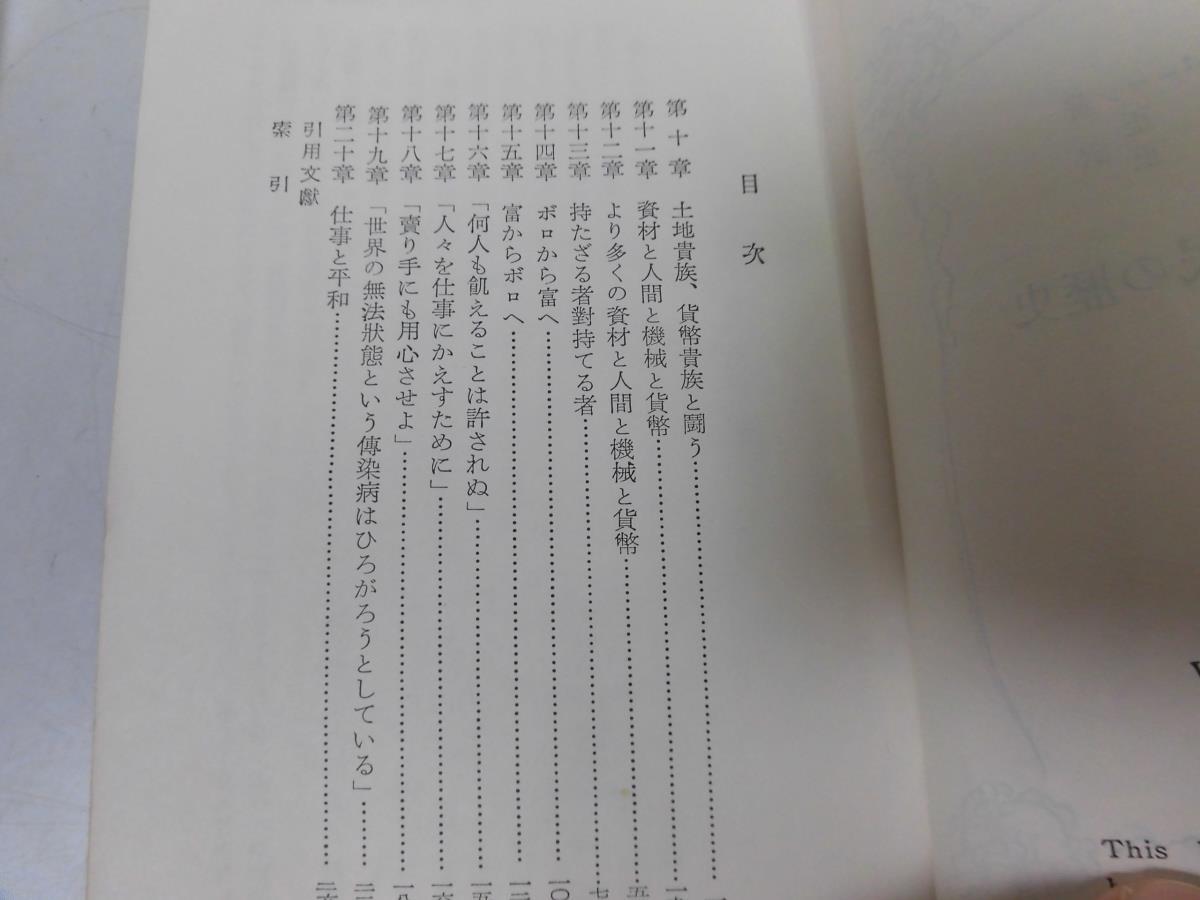 目次
第十章 土地貴族、貨幣貴族と闘う
第十一章 資材と人間と機械と貨幣
第十二章 より多くの資材と人間と機械と貨幣
第十三章 持たざる者對持てる者
第十四章 ボロから富へ
第十五章 富からボロへ
第十六章 「何人も飢えることは許されぬ」
第十七章 「人々を仕事にかえすために」
第十八章 「賣り手にも用心させよ」
第十九章 「世界の無法狀態という傳染病はひろがろうとしている」
第二十章 仕事と平和
引用文獻
索引
の歴史
This